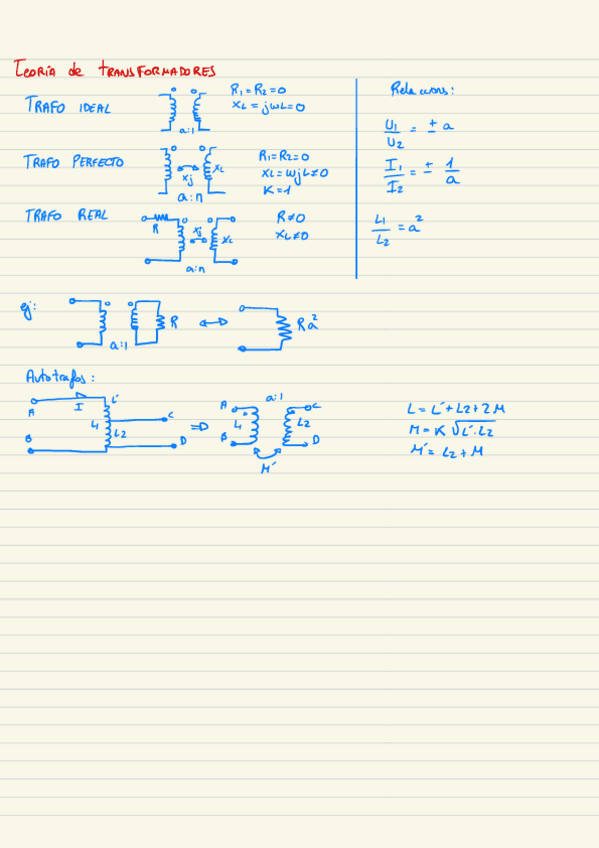 Teoría de transformadores
Trafo ideal
a:1
R₁=R₂=0
XL=jωL=0
Trafo perfecto
Xj
XL
a:n
R₁=R₂=0
XL=ωjL≠0
K=1
Trafo real
R
Xj
XL
a:n
R≠0
XL≠0
U₁/U₂ = ± a
I₁/I₂ = ± 1/a
L₁/L₂ = a²
ej:
a:1
R
Ra²
Autotrafos:
A
I
L'
L
L2
B
C
D
⇒
a:1
A
L
B
C
L2
D
M'
L = L'+L2+2M
M = K √L'·L2
M' = L2+M